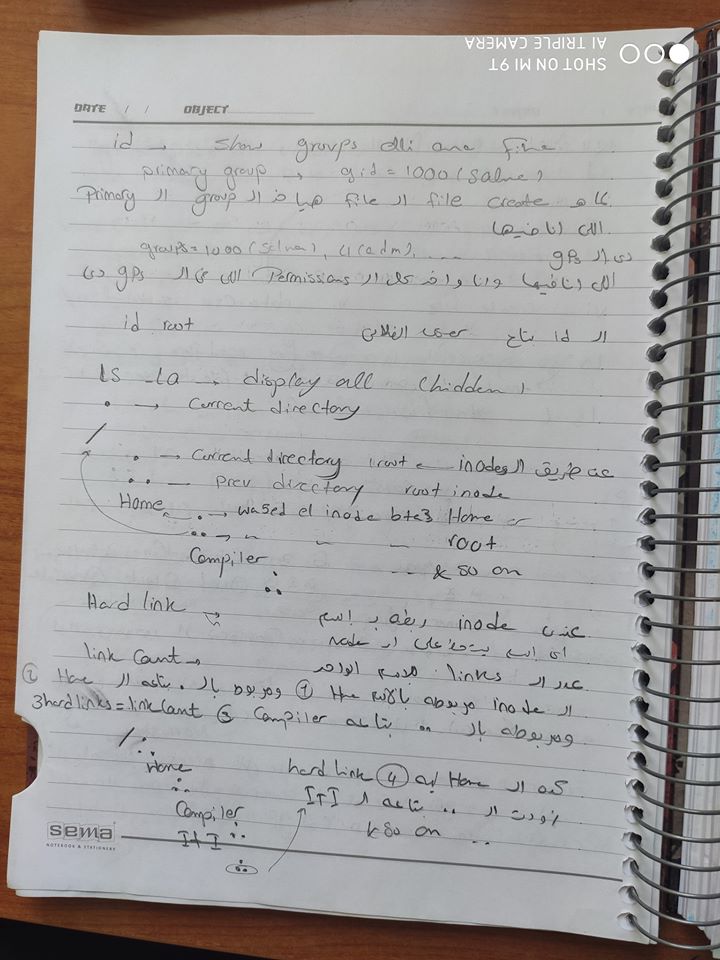 SHOT ON MI 9T
AI TRIPLE CAMERA
DATE / / OBJECT
id → show groups elli ana fiha
primary group → gid = 1000 (salma)
لما create file الـ file هياخد الـ group الـ Primary
اللى انا فيها
groups = 1000 (salma), 4(adm), .... دى الـ gps
اللى انا فيها وانا واخد كل الـ Permissions اللى فى الـ gps دى
id root الـ id بتاع user الفلانى
ls -la → display all (hidden)
. → Current directory
/
. → Current directory root عن طريق الـ inode
.. → prev directory root inode
Home . → wa5ed el inode bta3 Home
.. → " " " root
Compiler --- & so on
.
..
Hard link → عندى inode ربطه بـ اسم
اى اسم بيتحط على الـ node
link Count → عدد الـ links للاسم الواحد
الـ inode مربوطه بالاسم Home ① ومربوط بالـ . بتاعه الـ Home ②
ومربوطه بالـ .. بتاعه Compiler ③ 3hard links = link Count
/ . ..
Home كده الـ Home ليه ④ hard link
. ..
Compiler زودت الـ .. بتاعه الـ ITI
. .. & so on ..
ITI
. ..
sema
NOTEBOOK & STATIONERY